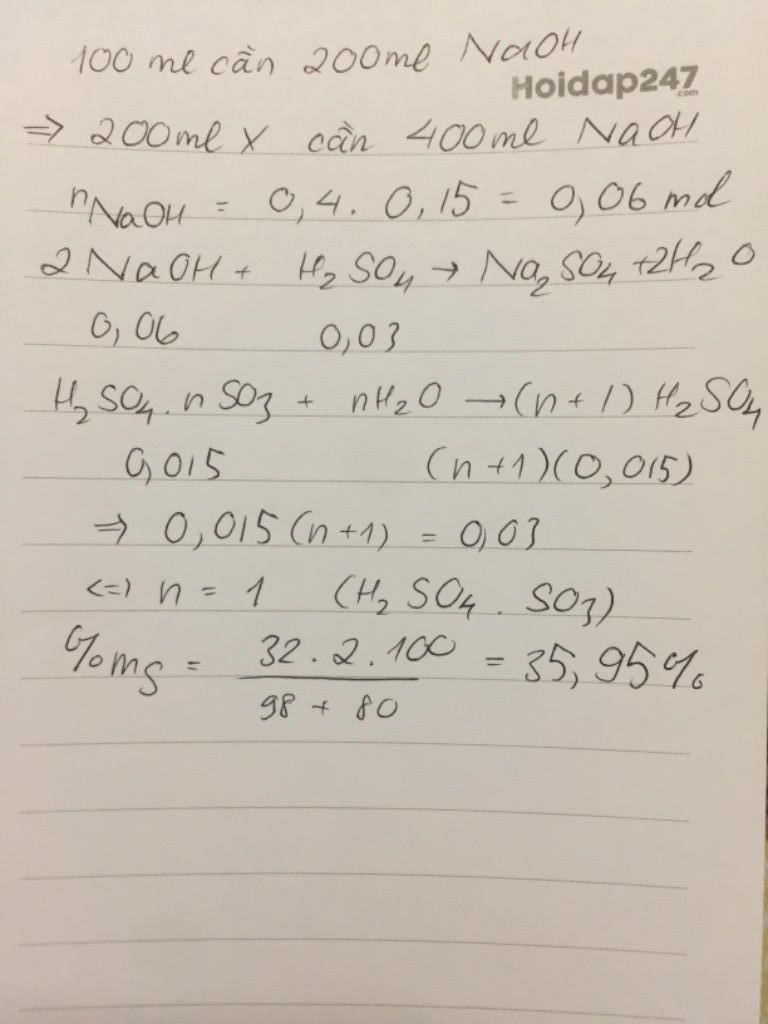 100 ml cần 200ml NaOH
Hoidap247
.com
=> 200ml X cần 400ml NaOH
nNaOH = 0,4. 0,15 = 0,06 mol
2 NaOH + H₂SO₄ → Na₂SO₄ + 2H₂O
0,06 0,03
H₂SO₄.nSO₃ + nH₂O → (n+1) H₂SO₄
0,015 (n+1)(0,015)
=> 0,015(n+1) = 0,03
<=> n = 1 (H₂SO₄.SO₃)
%mS = 32.2.100 / 98 + 80 = 35,95%